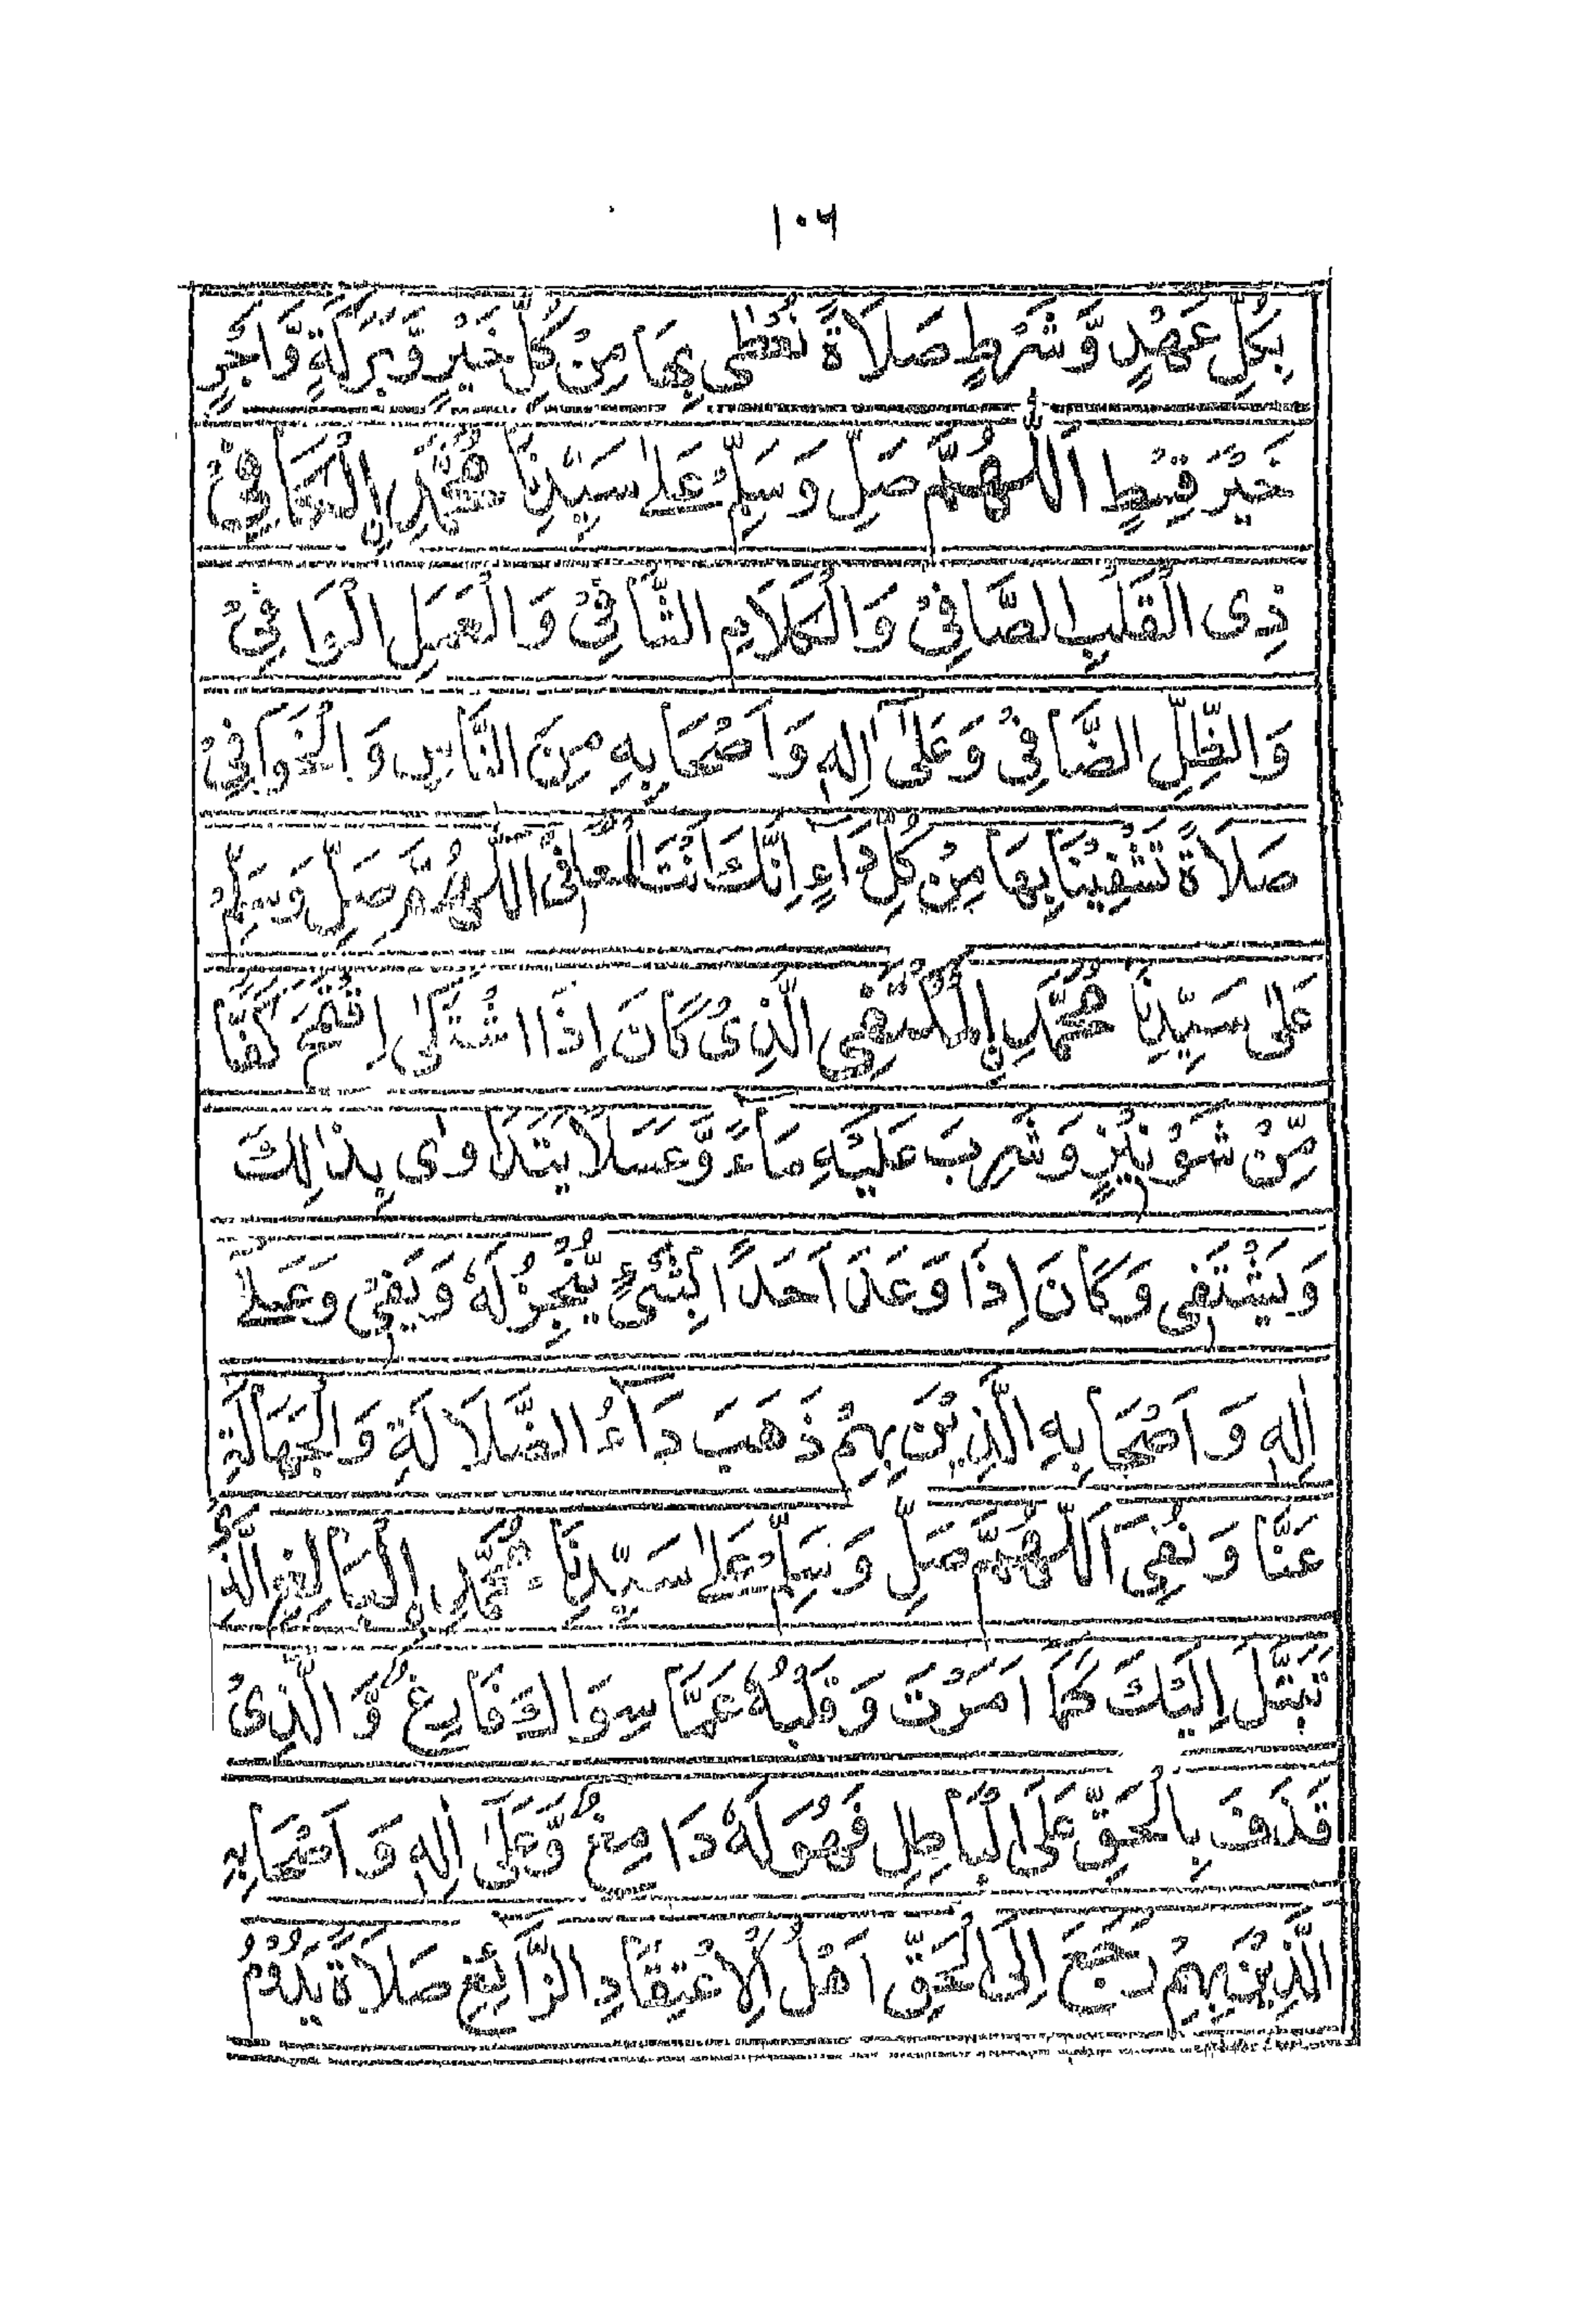 ١٠٦
بِكُلِّ عَهْدٍ وَّشَرْطٍ صَلَاةً نُعْطٰى بِهَا مِنْ كُلِّ خَيْرٍ وَّبَرَكَةٍ وَّاَجْرٍ
خَيْرَ قِسْطٍ اَللّٰهُمَّ صَلِّ وَسَلِّمْ عَلٰى سَيِّدِنَا مُحَمَّدِ نِ
ذِى الْقَلْبِ الصَّافِىْ وَالْكَلَامِ الشَّافِىْ وَالْعَمَلِ الْوَافِىْ
وَالظِّلِّ الضَّافِىْ وَعَلٰى اٰلِهٖ وَاَصْحَابِهٖ مِنَ النَّاسِ وَالْخَوَافِىْ
صَلَاةً تَشْفِيْنَا بِهَا مِنْ كُلِّ دَآءٍ اِنَّكَ اَنْتَ الْمُعَافِىْ اَللّٰهُمَّ صَلِّ وَسَلِّمْ
عَلٰى سَيِّدِنَا مُحَمَّدِ نِ الْمُكْتَفِىْ الَّذِىْ كَانَ اِذَا اشْتَكٰى اِقْتَمَحَ كَفًّا
مِّنْ شَوْنِيْزٍ وَشَرِبَ عَلَيْهِ مَآءً وَّعَسَلًا يَتَدَاوٰى بِذٰلِكَ
وَيَشْتَفِىْ وَكَانَ اِذَا وَعَدَ اَحَدًا لِشَىْءٍ يُّنْجِزُ لَهٗ وَيَفِىْ وَعَلٰى
اٰلِهٖ وَاَصْحَابِهٖ الَّذِيْنَ بِهِمْ ذَهَبَ دَآءُ الضَّلَالَةِ وَالْجَهَالَةِ
عَنَّا وَنُفِىَ اَللّٰهُمَّ صَلِّ وَسَلِّمْ عَلٰى سَيِّدِنَا مُحَمَّدِ نِ الْبَالِغِ الَّذِىْ
تَبَتَّلَ اِلَيْكَ كَمَا اَمَرْتَ وَقَلْبُهٗ عَمَّا سِوَاكَ فَارِغٌ وَّالَّذِىْ
قَذَفَ بِالْحَقِّ عَلَى الْبَاطِلِ فَهُوَ لَهٗ دَامِغٌ وَّعَلٰى اٰلِهٖ وَاَصْحَابِهٖ
الَّذِيْنَ بِهِمْ رَجَعَ اِلَى الْحَقِّ اَهْلُ الْاِعْتِقَادِ الزَّآئِغِ صَلَاةً يَدُوْمُ